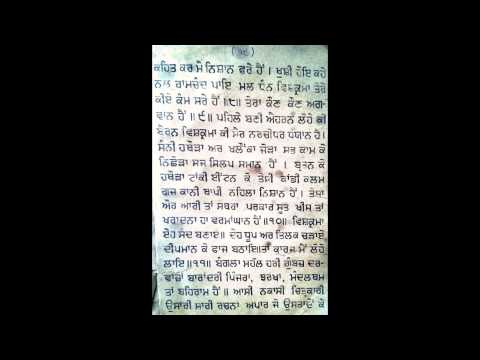 (੧੮)
ਕਹਿਤ ਕਰ ਮੈਂ ਨਿਸ਼ਾਨ ਵਰੇ ਹੈਂ । ਖੁਸ਼ੀ ਹੋਇ ਕਹੇ
ਨਲ ਰਾਮਚੰਦ ਪਾਇ ਮਲ ਧੰਨ ਵਿਸ਼ਕ੍ਰਮਾ ਤੇਰੇ
ਕੀਏ ਕੰਮ ਸਰੇ ਹੈਂ ॥੮॥ ਤੇਰਾ ਕੌਣ ਕੌਣ ਅਗ
ਵਾਨ ਹੈਂ ॥੯॥ ਪਹਿਲੇ ਬਣੀ ਐਹਰਨ ਲੋਹੇ ਕੀ
ਬੋਰਨ ਵਿਸ਼ਕ੍ਰਮਾ ਕੀ ਮੇਰ ਨਰਚੀਧਰ ਧਿਆਨ ਹੈ।
ਸੰਨੀ ਹਥੌੜਾ ਅਰ ਖਲੌਂਕਾ ਜੋੜਾ ਸਭ ਕਾਮ ਕੋ
ਨਿਛੋੜਾ ਸਜ ਸ਼ਿਲਪ ਸਮਾਨ ਹੈਂ । ਬੁਤਨ ਕੋ
ਹਥੌੜਾ ਟਾਂਕੀ ਈਂਟਨ ਕੋ ਤੇਸ਼ੀ ਕਾਂਡੀ ਕਲਮ
ਗਜ ਕਾਨੀ ਬਾਪੀ ਨਹਿਲਾ ਨਿਸ਼ਾਨ ਹੈਂ । ਤੇਸਾ
ਔਰ ਆਰੀ ਤਾਂ ਸਥਰਾ ਪਰਕਾਰ ਸੂਤ ਖੀਸ ਤਾਂ
ਖਰਾਦਨਾ ਹਾ ਵਰਮਾਂਘਾਨ ਹੈਂ॥੧੦॥ ਵਿਸ਼ਕ੍ਰਮਾ
ਏਹ ਸੰਦ ਬਣਾਏ॥ ਦੇਹ ਧੂਪ ਅਰ ਤਿਲਕ ਚੜਾਏ
ਦੀਪਮਾਨ ਕੇ ਵਾਸ ਬਠਾਇ॥ਤਾਂ ਕਾਰਜ ਮੈਂ ਲੋਹੇ
ਲਾਇ॥੧੧॥ ਬੰਗਲਾ ਮਹੱਲ ਹਰੀ ਗੁੰਬਜ਼ ਦਰ-
ਵਾਜ਼ਾ ਬਾਰਾਂਦਰੀ ਪਿੰਜਰਾ, ਝਰਖਾ, ਮੰਦਲਥਮ
ਤਾਂ ਬਹਿਰਾਮ ਹੈਂ ॥ ਆਸੀ ਨਕਾਸੀ ਚਿਤ੍ਰਕਾਰੀ
ਉਸਾਰੀ ਸਾਰੀ ਰਚਨਾ ਅਪਾਰ ਜੋ ਉਸਤਾਦੋਂ ਕੇ